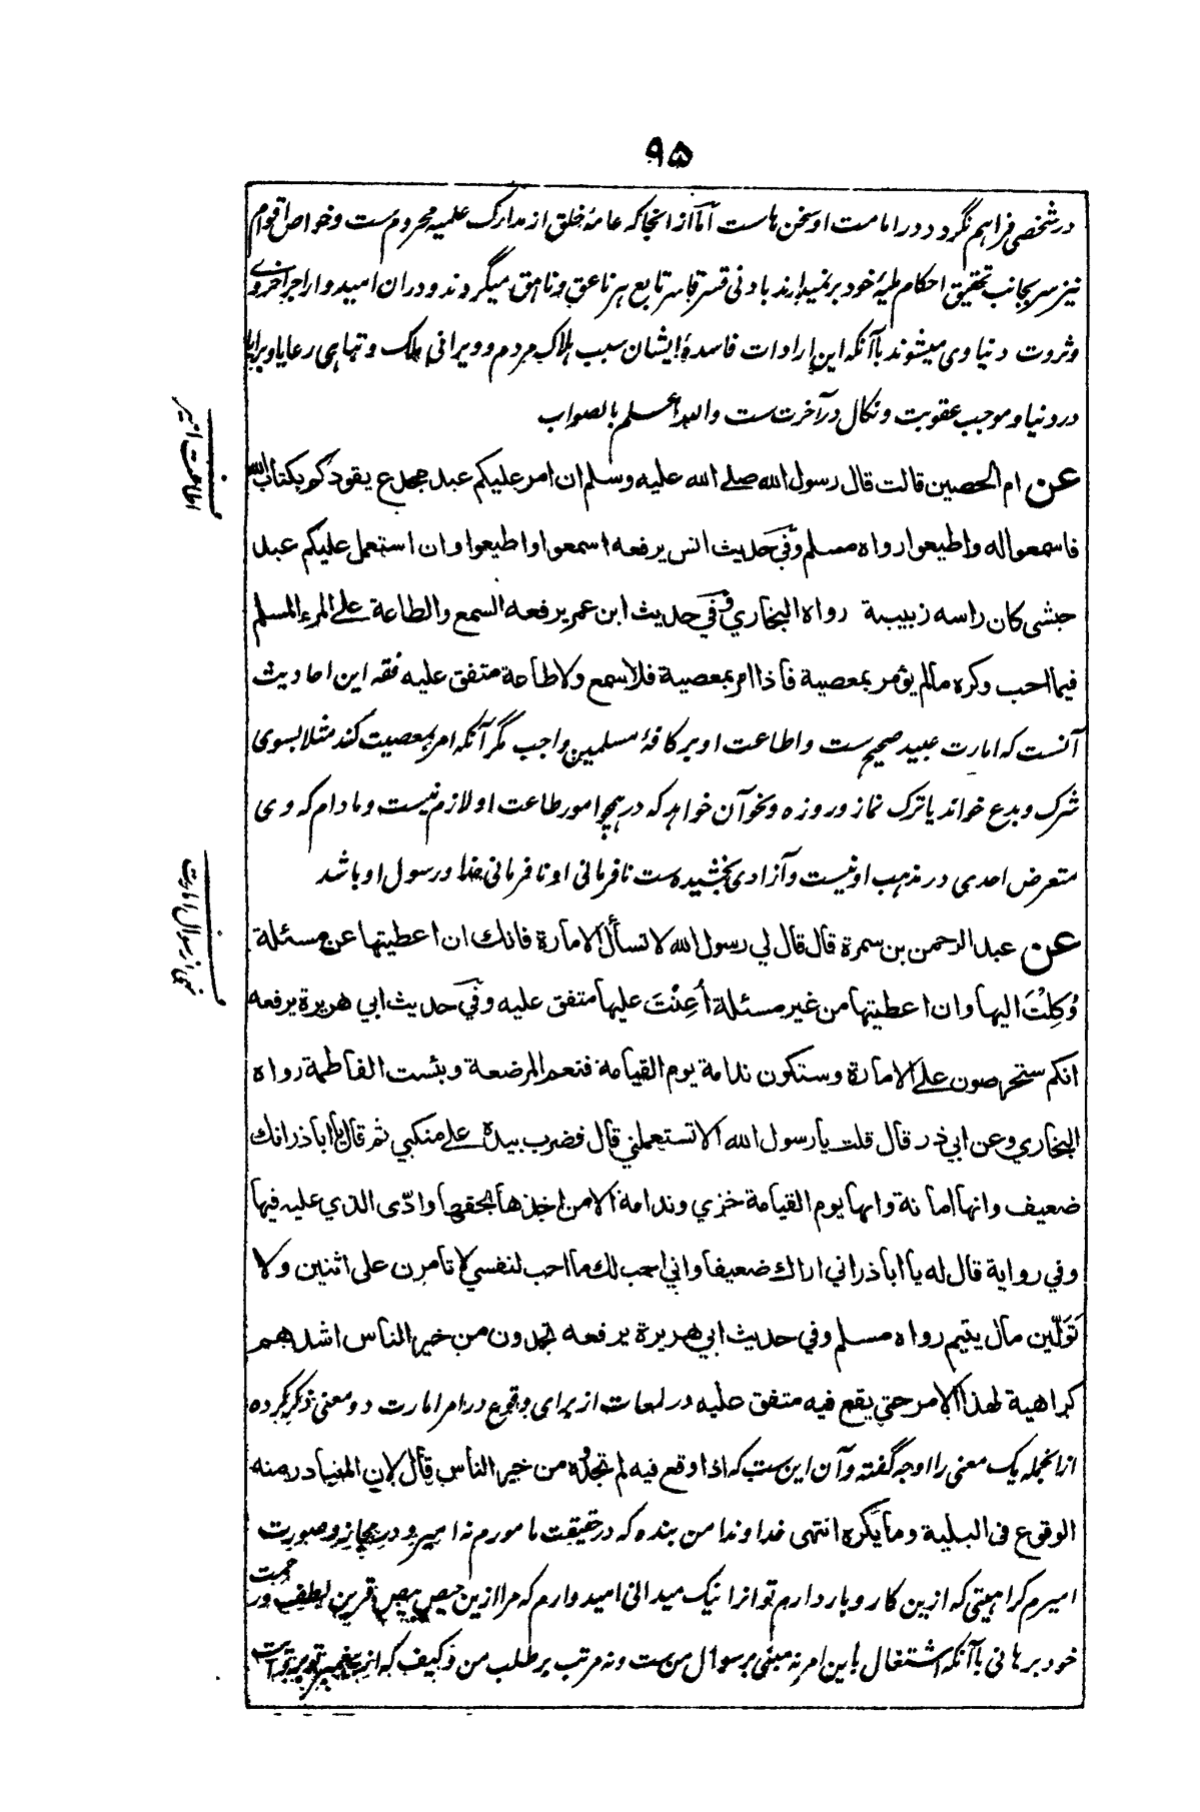 ۹۵
در شخصی فراهم نگردد در امامت او سخن هاست اما از انجا که عامهٔ خلق از مدارک علمیه محروم ست و خواص اقوام
نیز سر بجانب تحقیق احکام ملیهٔ خود بر نمیدارند بادنی قسر قاسر تابع هر ناعق و ناهق میگردند و دران امیدوار اجر اخروی
و ثروت دنیاوی میشوند با آنکه این ارادات فاسدهٔ ایشان سبب هلاک مردم و ویرانی ملک و تباهی رعایا و برایا
در دنیا و موجب عقوبت و نکال در آخرت ست والله اعلم بالصواب
اطاعت امیر
عن ام الحصین قالت قال رسول الله صلے الله علیه وسلم ان امر علیکم عبد مجدع یقودکم بکتاب الله
فاسمعوا له واطیعوا رواه مسلم وفی حدیث انس یرفعه اسمعوا واطیعوا وان استعمل علیکم عبد
حبشی کان راسه زبیبة رواه البخاري وفی حدیث ابن عمر یرفعه السمع والطاعة علے المرء المسلم
فیما احب وکره مالم یؤمر بمعصیة فاذا امر بمعصیة فلا سمع ولا طاعة متفق علیه فقه این احادیث
آنست که امارت عبید صحیح ست و اطاعت او بر کافهٔ مسلمین واجب مگر آنکه امر بمعصیت کند مثلا بسوی
شرک و بدع خواند یا ترک نماز و روزه و نحو آن خواهد که در همچو امور طاعت او لازم نیست و مادام که وی
متعرض احدی در مذهب او نیست و آزادی بخشیده ست نافرمانی او نافرمانی خدا و رسول او باشد
نهی از سوال امارت
عن عبد الرحمن بن سمرة قال قال لي رسول الله لا تسأل الامارة فانك ان اعطیتها عن مسئلة
وُكِلْتَ الیها وان اعطیتها من غیر مسئلة أُعِنْتَ علیها متفق علیه وفی حدیث ابي هریرة یرفعه
انکم ستحرصون علے الامارة وستکون ندامة یوم القیامة فنعم المرضعة وبئست الفاطمة رواه
البخاري وعن ابي ذر قال قلت یا رسول الله الا تستعملني قال فضرب بیده علے منکبي ثم قال یا اباذر انك
ضعیف وانها امانة وانها یوم القیامة خزي وندامة الا من اخذها بحقها وادّی الذي علیه فیها
وفي روایة قال له یا اباذر اني اراك ضعیفا واني احب لك ما احب لنفسي لا تأمرن علی اثنین ولا
تَوَلَّین مال یتیم رواه مسلم وفي حدیث ابي هریرة یرفعه تجدون من خیر الناس اشدهم
کراهیة لهذا الامر حتی یقع فیه متفق علیه در لمعات از برای وقوع در امر امارت دو معنی ذکر کرده
ازانجمله یک معنی را اوجه گفته و آن این ست که اذا وقع فیه لم تجدوه من خیر الناس قال لان المتبادر منه
الوقوع فی البلیة وما یکره انتهی خداوندا من بنده که در حقیقت مامورم نه امیر و در مجاز و صورت
امیرم کراهیتی که ازین کار و بار دارم تو انرا نیک میدانی امیدوارم که مرا ازین حیص بیص قرین لطف و رحمت
خود برهانی با آنکه اشتغال باین امر نه مبنی بر سوال من ست و نه مرتب بر طلب من و کیف که از پیغمبر تو